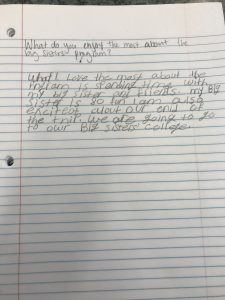 What do you enjoy the most about the
big sisters' program?
What I love the most about the
program is spending time with
my big sister and friends. my Big
sister is so fun I am also
excited about our end of
the trip. we are going to go
to our Big Sisters' College.